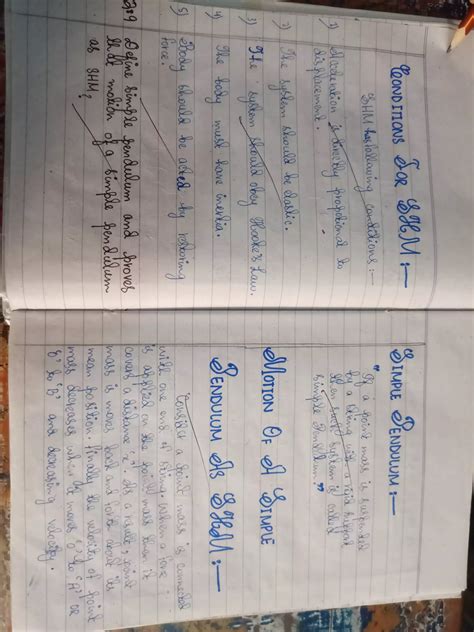 CONDITIONS FOR SHM:—
SHM has following conditions:—
1) Acceleration is directly proportional to
displacement.
2) The system should be elastic.
3) The system should obey Hooke's Law.
4) The body must have inertia.
5) Body should be acted by restoring
force.
Q:9 Define simple pendulum and proves
that motion of a simple pendulum
as SHM?
SIMPLE PENDULUM:—
"If a point mass is suspended
to a string with a rigid support
then such system is called
simple Pendulum."
MOTION OF A SIMPLE
PENDULUM AS SHM:—
Consider a point mass is connected
with one end of string. When a force
is applied on the point mass then it
covert a distance 'x'. As a result, point
mass is move back and forth about its
mean position. Finally the velocity of point
mass decreases when it moves 'o' to 'A' or
to 'B' and decreasing velocity.